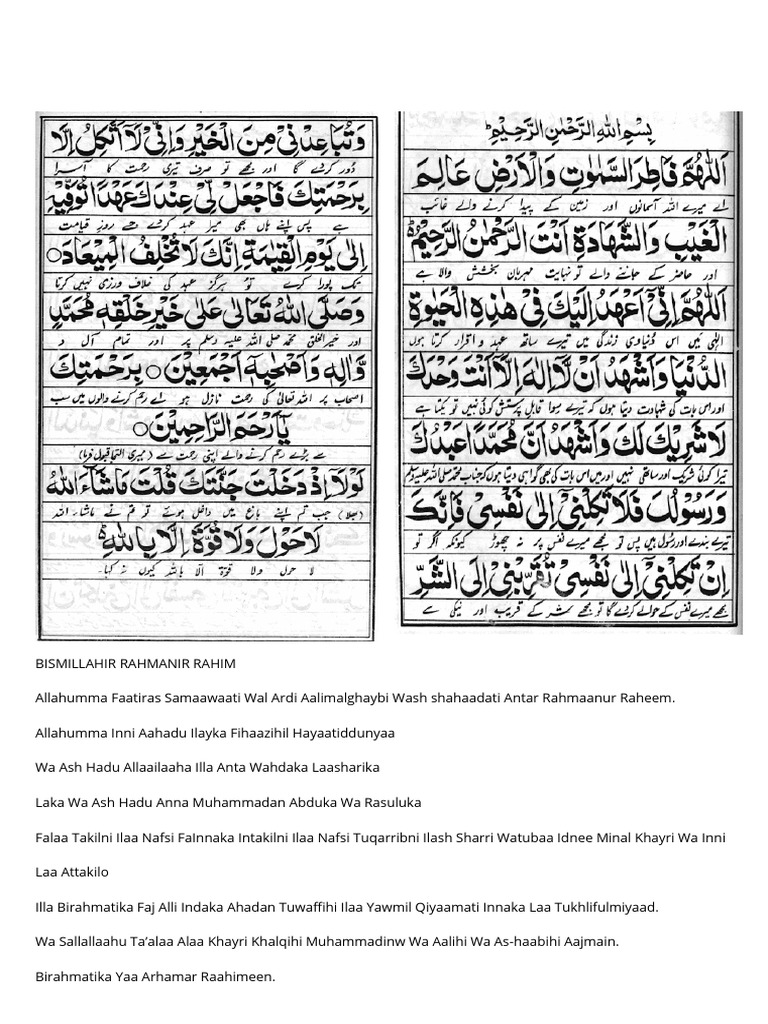 بِسْمِ اللهِ الرَّحْمٰنِ الرَّحِيْمِ
اَللّٰهُمَّ فَاطِرَ السَّمٰوٰتِ وَالْاَرْضِ عَالِمَ
اے میرے اللہ آسمانوں اور زمین کے پیدا کرنے والے غائب
الْغَيْبِ وَالشَّهَادَةِ اَنْتَ الرَّحْمٰنُ الرَّحِيْمُ
اور حاضر کے جاننے والے تو نہایت مہربان بخشش والا ہے
اَللّٰهُمَّ اِنِّىْٓ اَعْهَدُ اِلَيْكَ فِىْ هٰذِهِ الْحَيٰوةِ
الٰہی میں اس دُنیاوی زندگی میں تیرے ساتھ عہد و اقرار کرتا ہوں
الدُّنْيَا وَاَشْهَدُ اَنْ لَّآ اِلٰهَ اِلَّآ اَنْتَ وَحْدَكَ
اور اس بات کی شہادت دیتا ہوں کہ تیرے سوا قابلِ پرستش کوئی نہیں تو یکتا ہے
لَا شَرِيْكَ لَكَ وَاَشْهَدُ اَنَّ مُحَمَّدًا عَبْدُكَ
تیرا کوئی شریک اور ساتھی نہیں اور میں اس بات کی بھی گواہی دیتا ہوں کہ جناب محمد صلی اللہ علیہ وسلم
وَرَسُوْلُكَ فَلَا تَكِلْنِىْٓ اِلٰى نَفْسِىْ فَاِنَّكَ
تیرے بندے اور رسول ہیں پس تو مجھے میرے نفس پر نہ چھوڑ کیونکہ اگر تو
اِنْ تَكِلْنِىْٓ اِلٰى نَفْسِىْ تُقَرِّبْنِىْٓ اِلَى الشَّرِّ
مجھے میرے نفس کے حوالے کر دے گا تو مجھے شر کے قریب اور نیکی سے
وَتُبَاعِدْنِىْ مِنَ الْخَيْرِ وَاِنِّىْ لَآ اَتَّكِلُ اِلَّا
دُور کر دے گا اور مجھے تو صرف تیری رحمت کا آسرا
بِرَحْمَتِكَ فَاجْعَلْ لِّىْ عِنْدَكَ عَهْدًا تُوَفِّيْهِ
ہے پس اپنے ہاں بھی میرا عہد کر دے جسے روزِ قیامت
اِلٰى يَوْمِ الْقِيٰمَةِ اِنَّكَ لَا تُخْلِفُ الْمِيْعَادَ ○
تک پورا کرے تو ہرگز عہد کی خلاف ورزی نہیں کرتا
وَصَلَّى اللهُ تَعَالٰى عَلٰى خَيْرِ خَلْقِهٖ مُحَمَّدٍ
اور خیر الخلق محمد صلی اللہ علیہ وسلم پر اور تمام آل و
وَّاٰلِهٖ وَاَصْحٰبِهٖٓ اَجْمَعِيْنَ ○ بِرَحْمَتِكَ
اصحاب پر اللہ تعالیٰ کی رحمت نازل ہو اے رحم کرنے والوں میں سب
يَآ اَرْحَمَ الرَّاحِمِيْنَ ○
سے بڑے رحم کرنے والے اپنی رحمت سے (میری التجا قبول فرما)
لَوْلَآ اِذْ دَخَلْتَ جَنَّتَكَ قُلْتَ مَا شَآءَ اللهُ
(بھلا) جب تم اپنے باغ میں داخل ہوئے تو تم نے ماشاء اللہ
لَا حَوْلَ وَلَا قُوَّةَ اِلَّا بِاللهِ
لا حول ولا قوۃ الا باللہ کیوں نہ کہا۔
BISMILLAHIR RAHMANIR RAHIM
Allahumma Faatiras Samaawaati Wal Ardi Aalimalghaybi Wash shahaadati Antar Rahmaanur Raheem.
Allahumma Inni Aahadu Ilayka Fihaazihil Hayaatiddunyaa
Wa Ash Hadu Allaailaaha Illa Anta Wahdaka Laasharika
Laka Wa Ash Hadu Anna Muhammadan Abduka Wa Rasuluka
Falaa Takilni Ilaa Nafsi FaInnaka Intakilni Ilaa Nafsi Tuqarribni Ilash Sharri Watubaa Idnee Minal Khayri Wa Inni
Laa Attakilo
Illa Birahmatika Faj Alli Indaka Ahadan Tuwaffihi Ilaa Yawmil Qiyaamati Innaka Laa Tukhlifulmiyaad.
Wa Sallallaahu Ta’alaa Alaa Khayri Khalqihi Muhammadinw Wa Aalihi Wa As-haabihi Aajmain.
Birahmatika Yaa Arhamar Raahimeen.